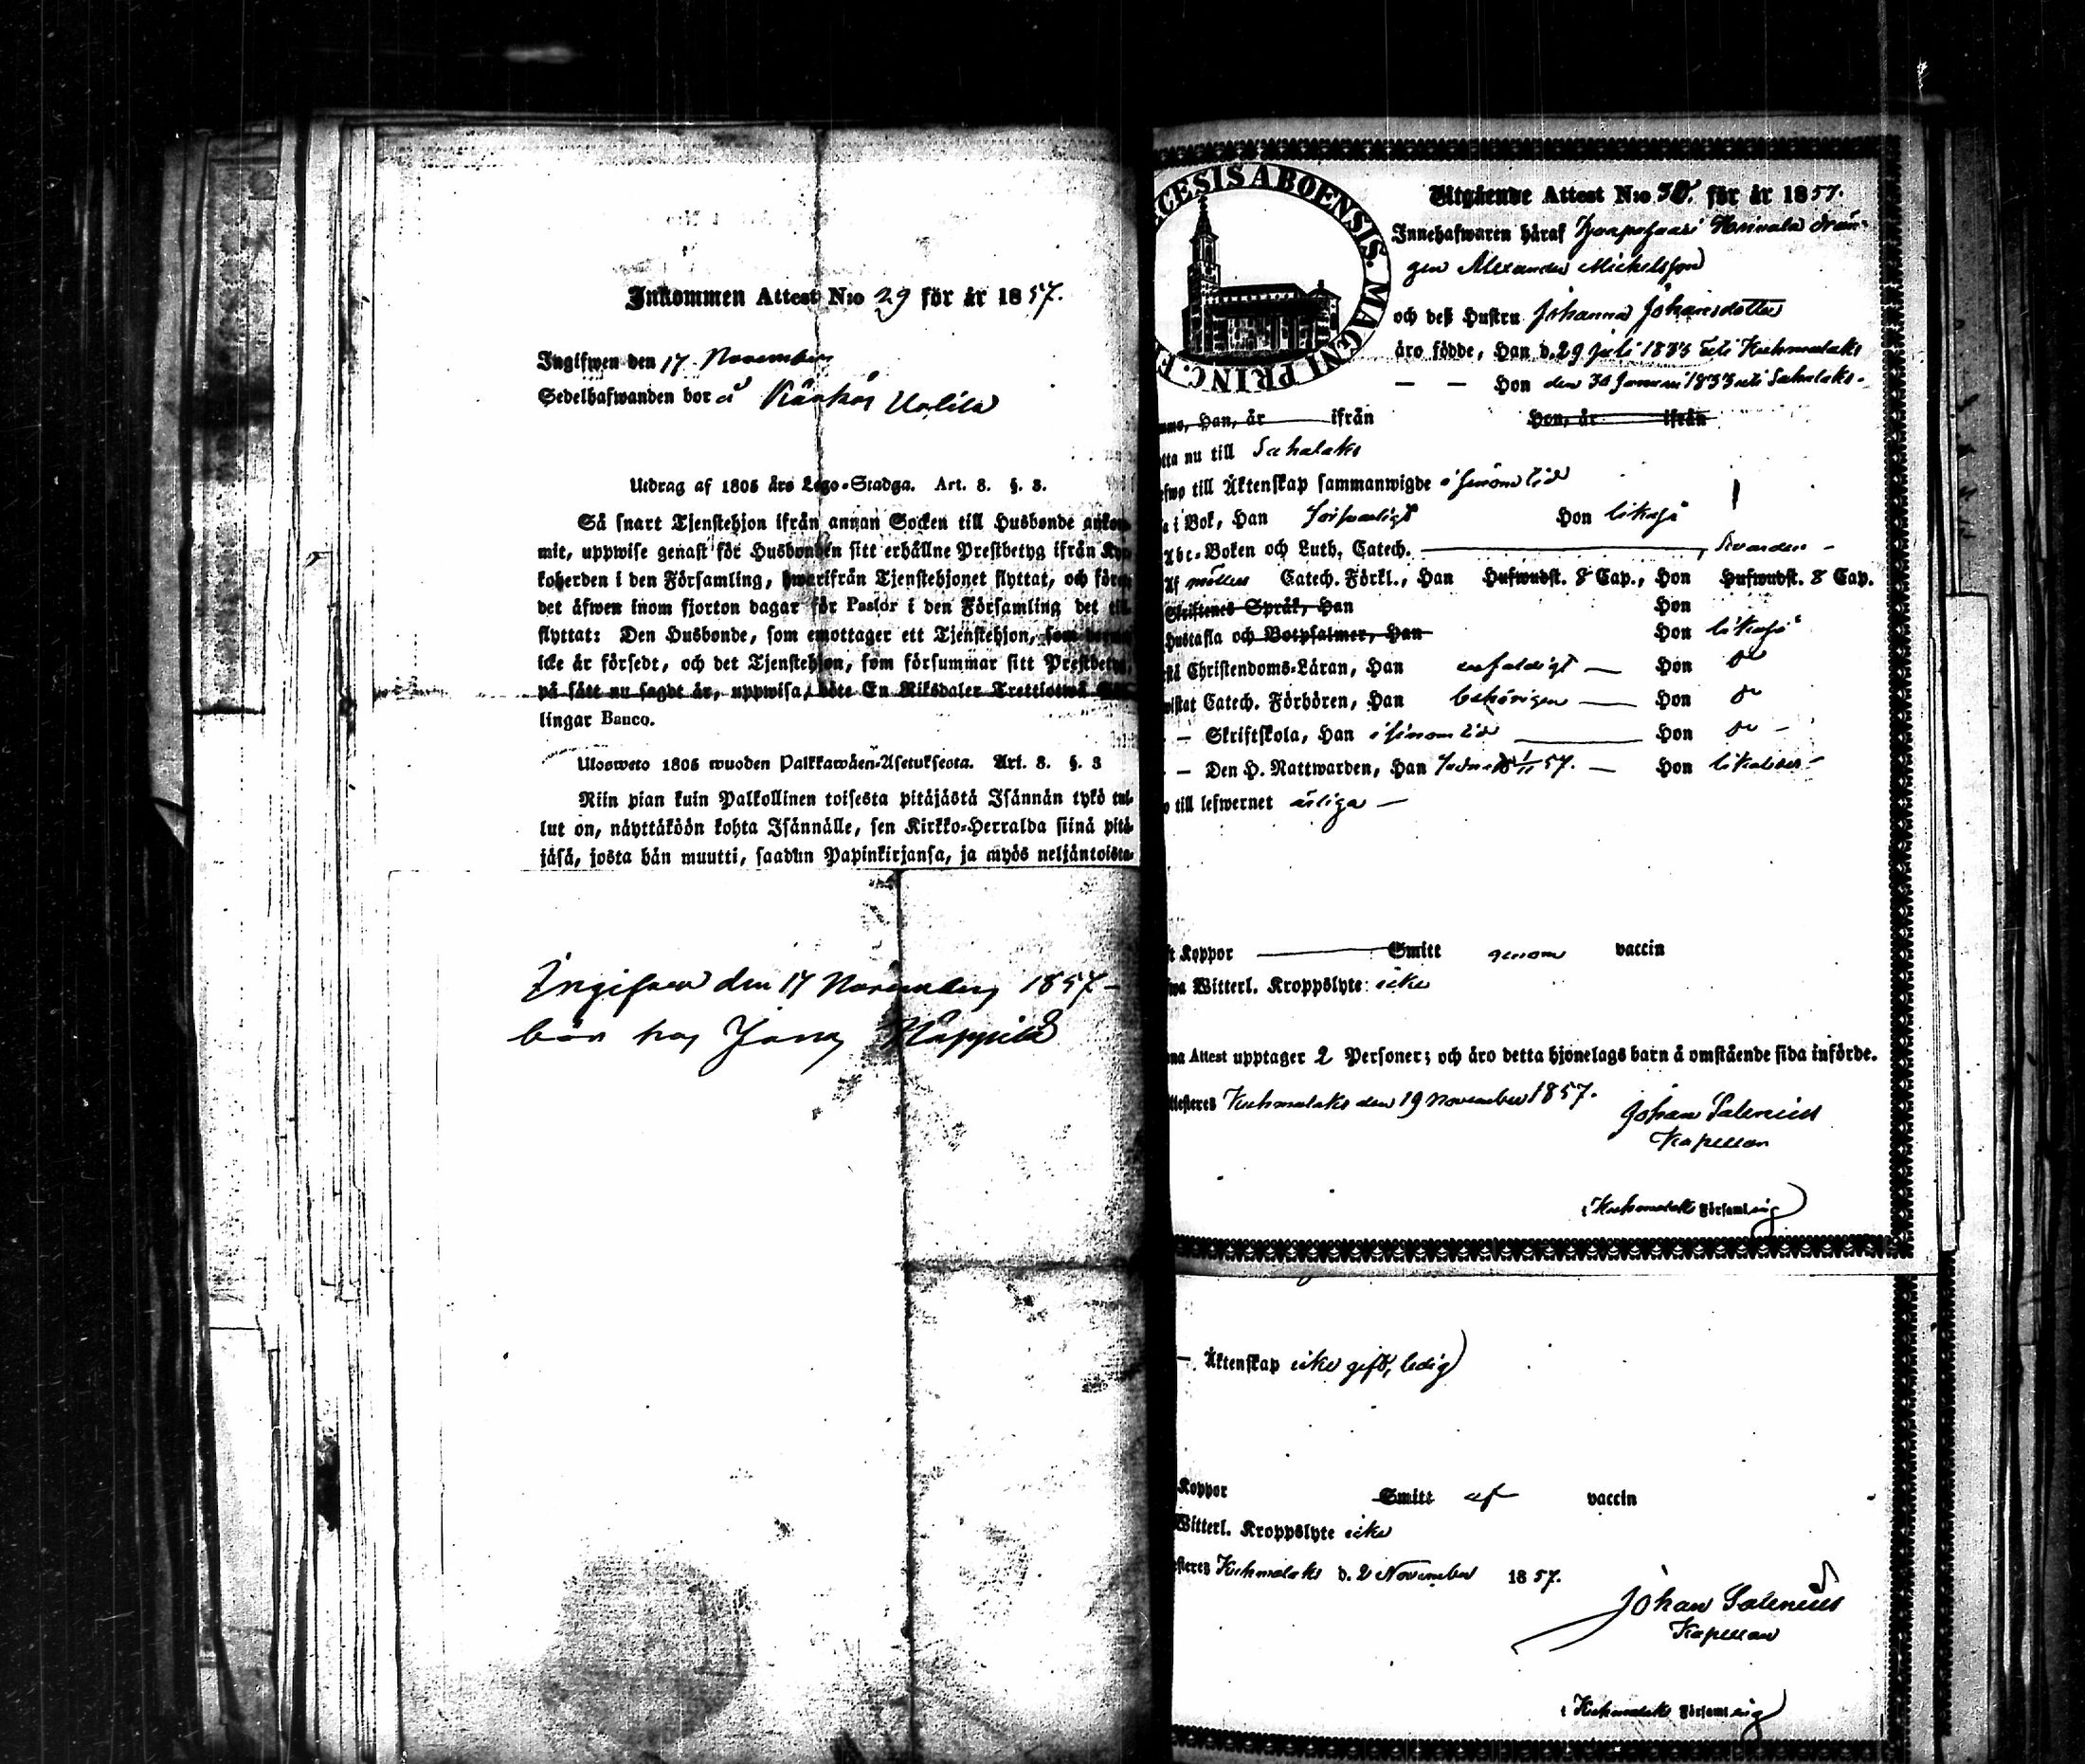 Inkommen Attest N:o 29 för år 1857.
Ingifwen den 17 November
Sedelhafwanden bor å
Utdrag af 1805 års Lego-Stadga. Art. 8. §. 3.
Så snart Tjenstehjon ifrån annan Socken till Husbonde
mit, uppwise genast för Husbonden sitt erhållne Prestbetyg ifrån
koherden i den Församling, hwarifrån Tjenstehjonet flyttat, och
det äfwen inom fjorton dagar för Pastor i den Församling det
flyttat: Den Husbonde, som emottager ett Tjenstehjon, som
icke är försedt, och det Tjenstehjon, som försummar sitt
på sätt nu sagdt är, uppwisa, böte En Riksdaler Trettiotwå
lingar Banco.
Ulosweto 1805 wuoden Palkkawäen-Asetuksesta. Art. 8. §. 3
Niin pian kuin Palkollinen toisesta pitäjästä Isännän tykö tul-
lut on, näyttäköön kohta Isännälle, sen Kirkko-Herralda siinä pitä-
jäsä, josta hän muutti, saadun Papinkirjansa, ja myös neljäntoista-
Ingifwen den 17 November 1857
bör hos
CESIS ABOENSIS. MAGNI PRINC. F
Utgående Attest N:o 30. för år 1857.
Innehafwaren häraf drän-
gen Alexander Michelsson
och deß Hustru Johanna Johansdotter
äro födde, Han d. 29 Juli 1833 uti Kuhmalaks
— — Hon den 30 Januari 1833 uti Sahalaks.
Han, år ifrån Hon, år ifrån
nu till Sahalaks
till Äktenskap sammanwigde i sinom tid
i Bok, Han försvarligt Hon likaså
Abc-Boken och Luth. Catech.
Af möllers Catech. Förkl., Han Hufwudst. 8 Cap., Hon Hufwudst. 8 Cap.
Skriftenes Språk, Han Hon
Hustafla och Botpsalmer, Han Hon likaså
Christendoms-Läran, Han enfaldigt — Hon do
Catech. Förhören, Han behörigen — Hon do
— Skriftskola, Han i sinom tid Hon do
— Den H. Nattwarden, Han 57. — Hon
till lefwernet ärliga —
Koppor Smitt genom vaccin
Witterl. Kroppslyte: icke
Attest upptager 2 Personer; och äro detta hjonelags barn å omstående sida införde.
Kuhmalaks den 19 November 1857.
Johan Salenius
Kapellan
i Kuhmalaks Församling
— Äktenskap icke gift, ledig
Koppor Smitt af vaccin
Witterl. Kroppslyte icke
Kuhmalaks d. 2 November 1857.
Johan Salenius
Kapellan
i Kuhmalaks Församling